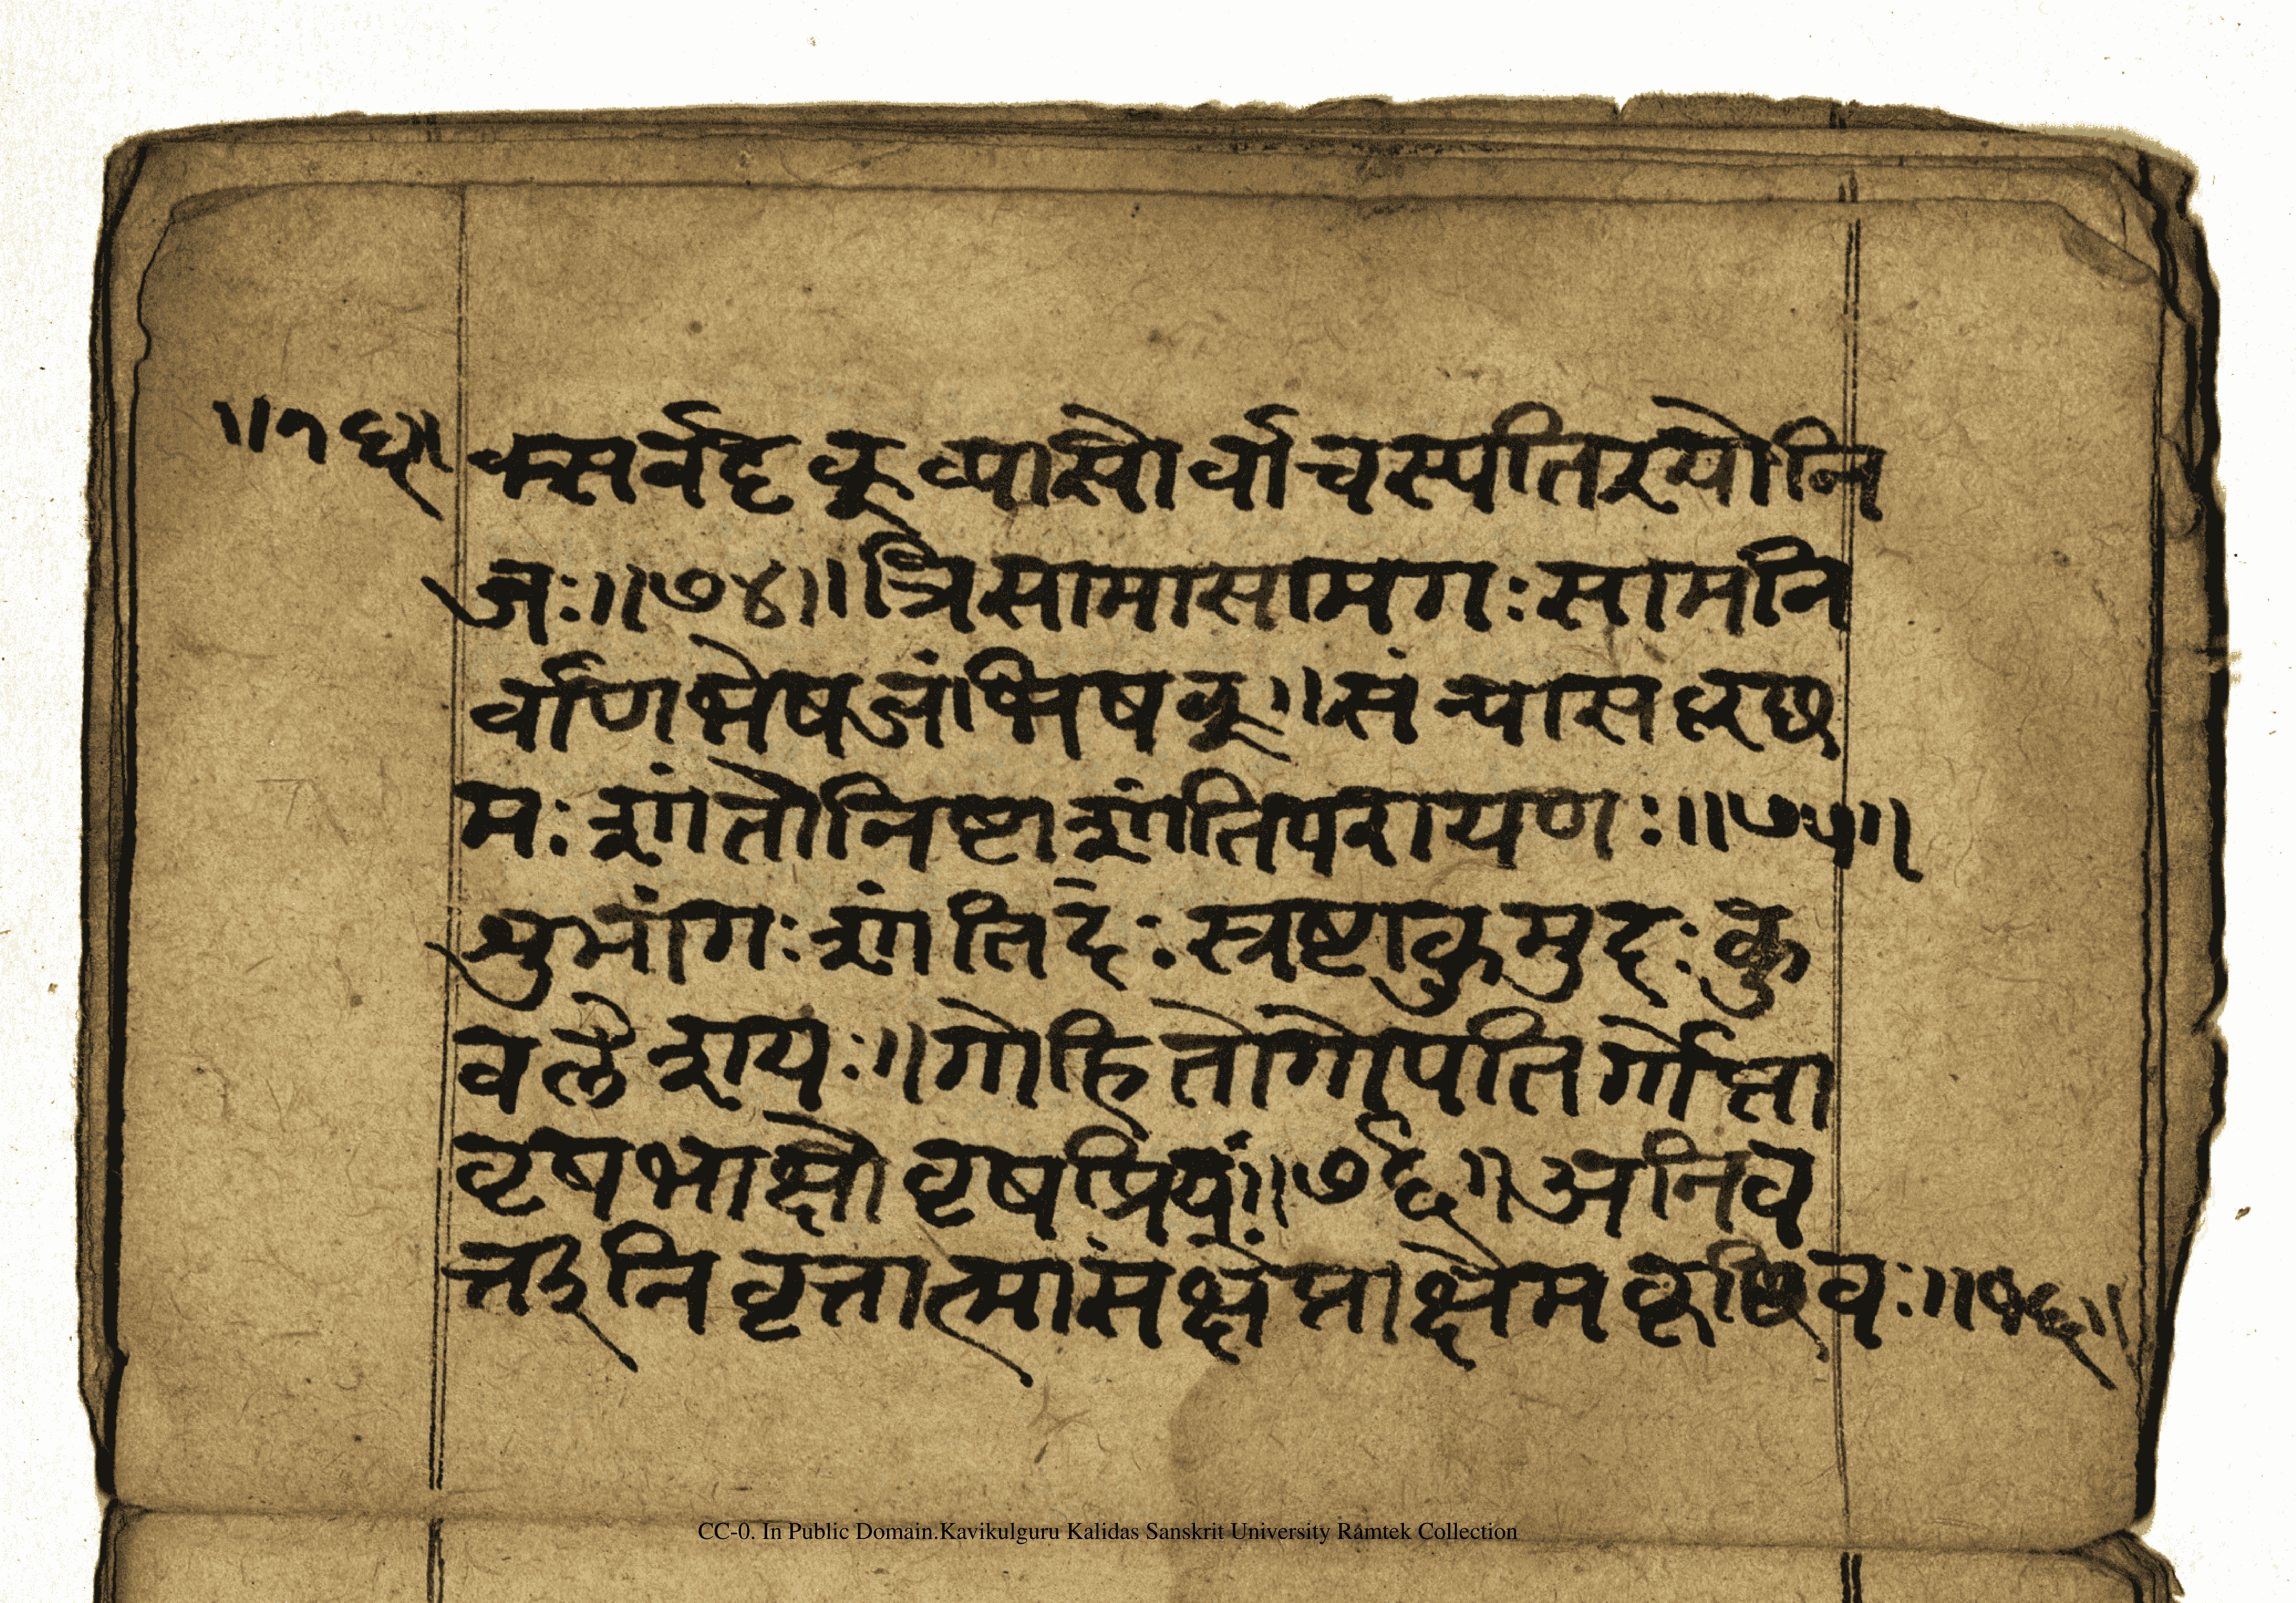 ॥१६॥ क्सर्वदृक् व्यासोर्वाचस्पतिरयोनि
जः॥७४॥त्रिसामासामगःसामनि
र्वाणभेषजंभिषक्॥संन्यासकृछ
मःशांतोनिष्टाशांतिपरायणः॥७५॥
शुभांगःशांतिदःस्त्रष्टाकुमुदःकु
वलेशयः॥गोहितोगोपतिर्गोप्ता
वृषभाक्षोवृषप्रियः॥७६॥अनिव
र्त्तीनिवृत्तात्मासंक्षेप्ताक्षेमकृछिवः॥१६॥
CC-0. In Public Domain.Kavikulguru Kalidas Sanskrit University Ramtek Collection